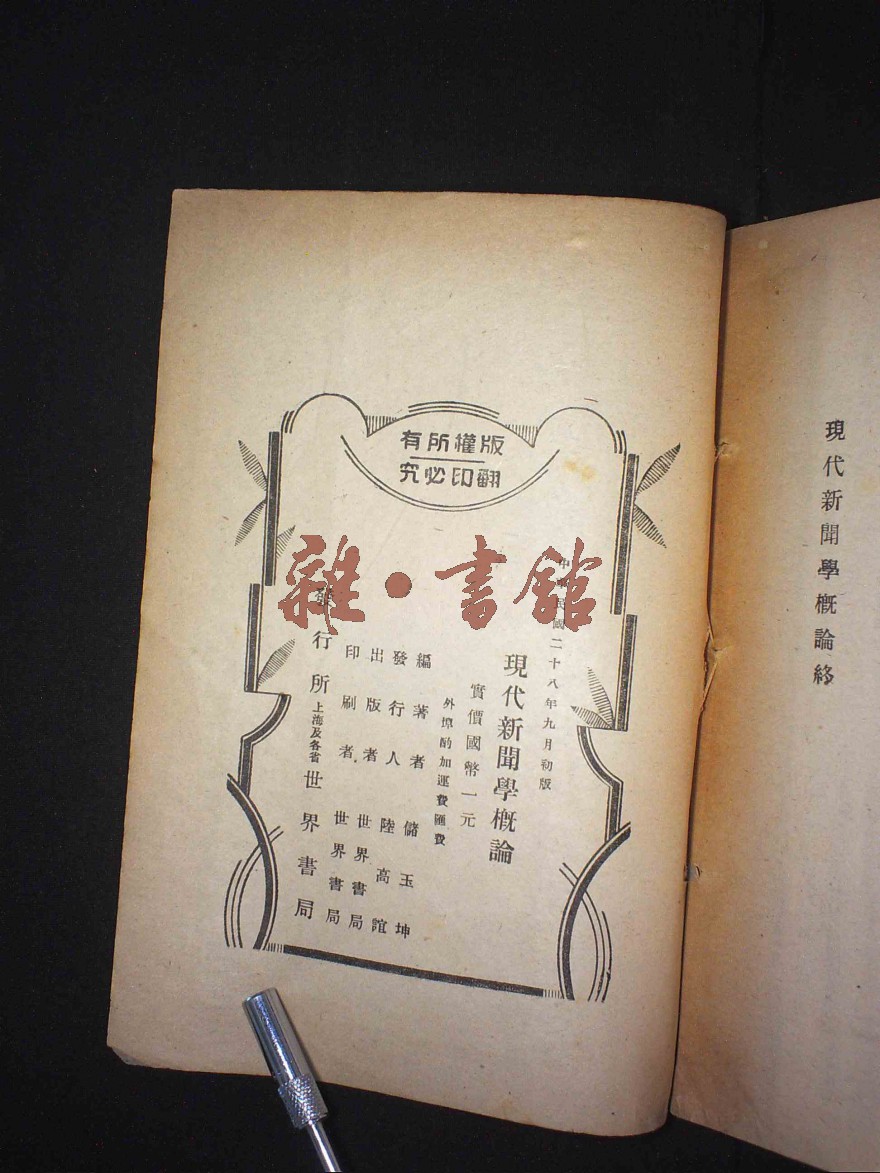 現代新聞學概論終
版權所有
翻印必究
中華民國二十八年九月初版
現代新聞學概論
實價國幣一元
外埠酌加運費匯費
編著者 儲玉坤
發行人 陸高誼
出版者 世界書局
印刷者 世界書局
發行所 上海及各省 世界書局
雜·書館